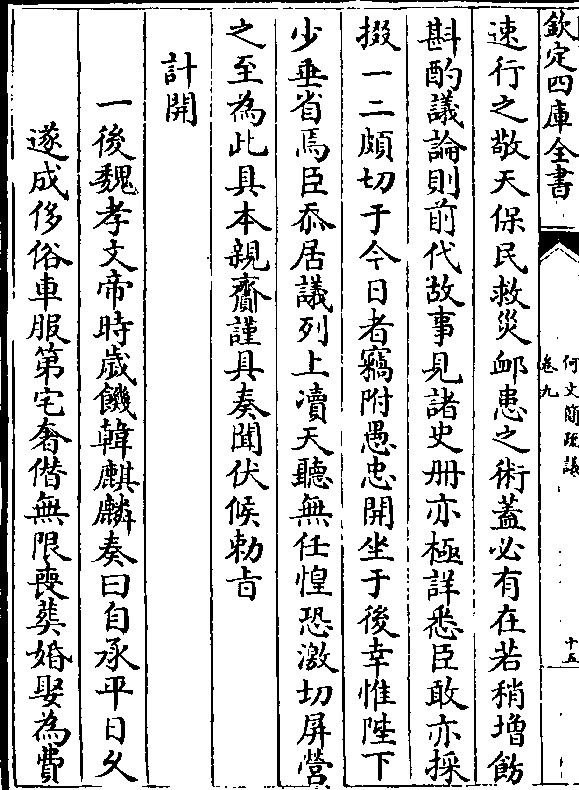 欽定四庫全書
何文簡疏議
卷九
十五
速行之敬天保民救災䘏患之術蓋必有在若稍増飭
斟酌議論則前代故事見諸史册亦極詳悉臣敢亦採
掇一二頗切于今日者竊附愚忠開坐于後幸惟陛下
少垂省焉臣忝居議列上瀆天聽無任惶恐激切屏營
之至為此具本親齎謹具奏聞伏候勅㫖
計開
一後魏孝文帝時歲饑韓麒麟奏曰自承平日久
遂成侈俗車服第宅奢僭無限喪葬婚娶為費